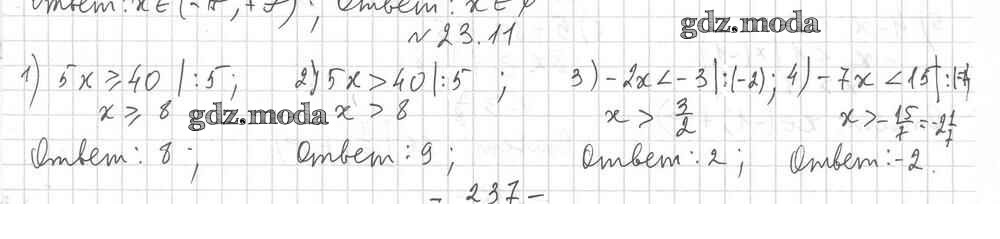 Ответ: x ∈ (-∞, +∞); Ответ: x ∈ ∅
gdz.moda
№ 23.11
1) 5x ≥ 40 |:5; 2) 5x > 40 |:5 ; 3) -2x < -3 |:(-2); 4) -7x < 15 |:(-7)
x ≥ 8 gdz.moda x > 8 x > 3/2 x > -15/7 = -2 1/7
Ответ: 8; Ответ: 9; Ответ: 2; Ответ: -2.
- 237 -